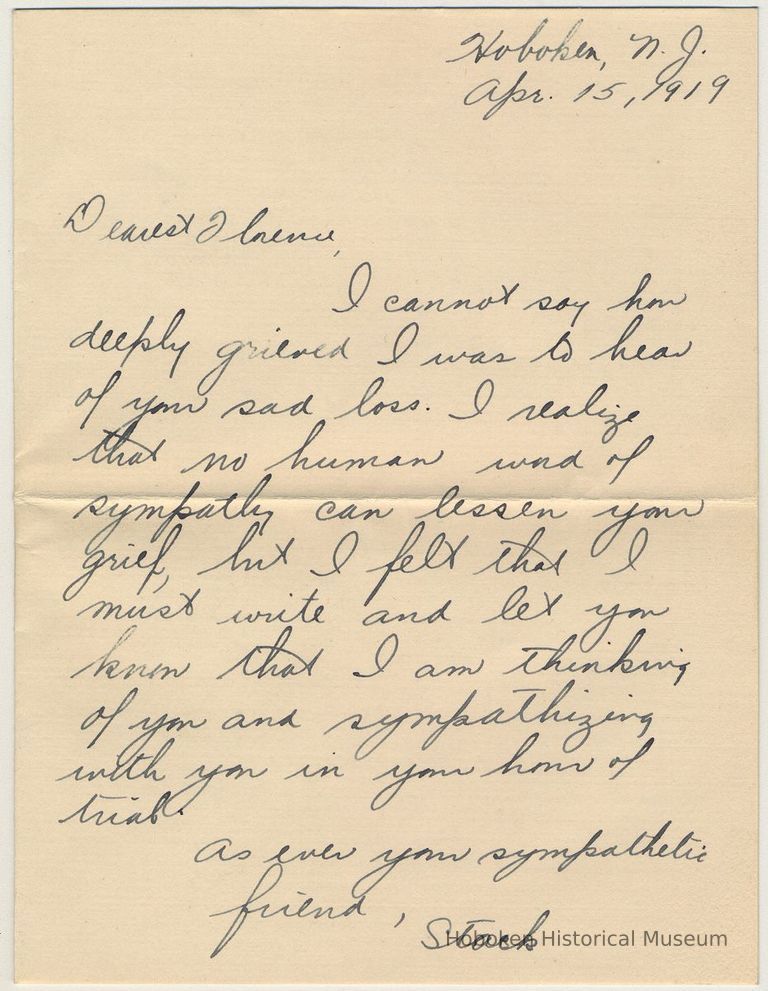 Hoboken, N. J.
Apr. 15, 1919
Dearest Florence,
I cannot say how
deeply grieved I was to hear
of your sad loss. I realize
that no human word of
sympathy can lessen your
grief, but I felt that I
must write and let you
know that I am thinking
of you and sympathizing
with you in your hour of
trial.
As ever your sympathetic
friend,
Hoboken Historical Museum